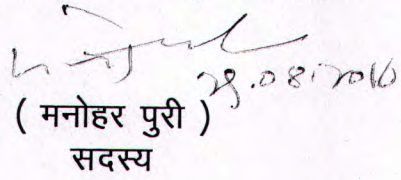 29.08.2016
( मनोहर पुरी )
सदस्य